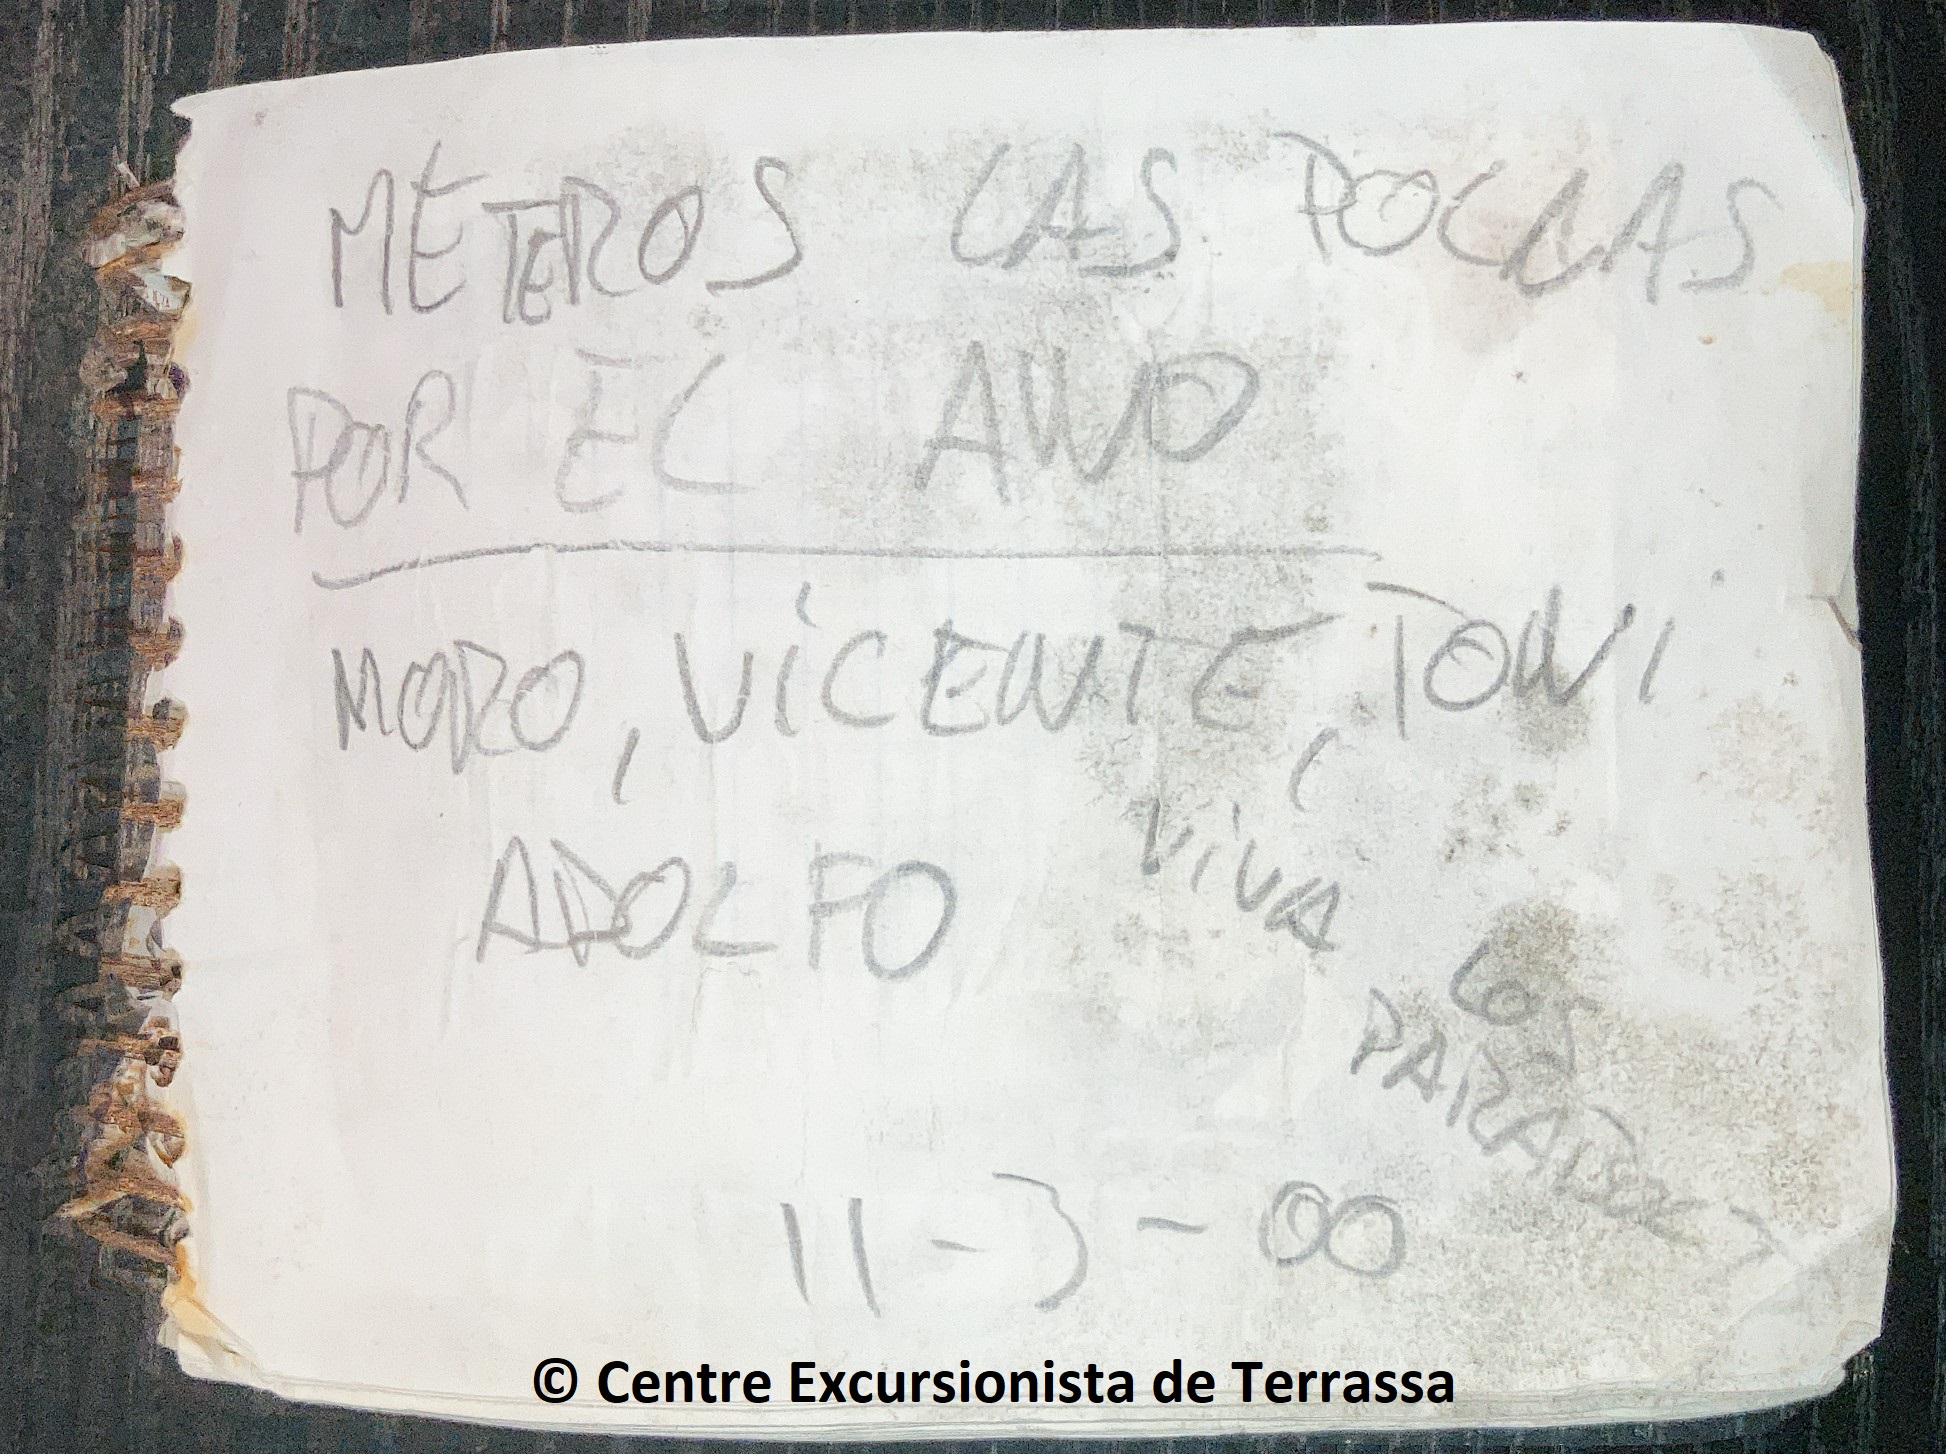 METEROS LAS POLLAS
POR EL ANO
MORO, VICENTE, TONI
ADOLFO
VIVA
LOS
11-3-00
© Centre Excursionista de Terrassa